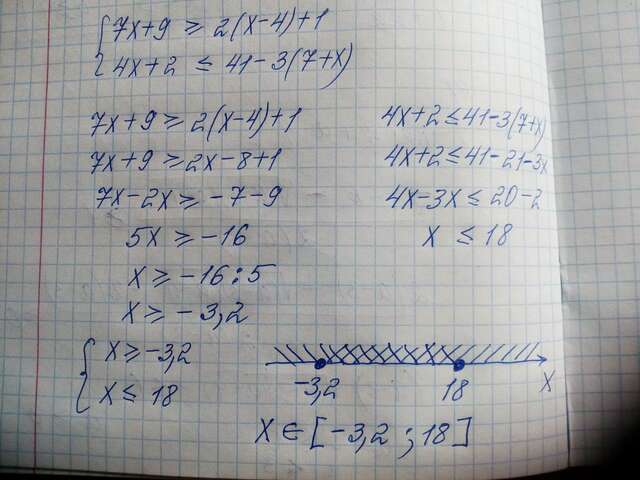 {7x+9 ≥ 2(x-4)+1
4x+2 ≤ 41-3(7+x)
7x+9 ≥ 2(x-4)+1
7x+9 ≥ 2x-8+1
7x-2x ≥ -7-9
5x ≥ -16
x ≥ -16:5
x ≥ -3,2
4x+2 ≤ 41-3(7+x)
4x+2 ≤ 41-21-3x
4x-3x ≤ 20-2
x ≤ 18
{x ≥ -3,2
x ≤ 18
-3,2 18 x
x ∈ [-3,2 ; 18]